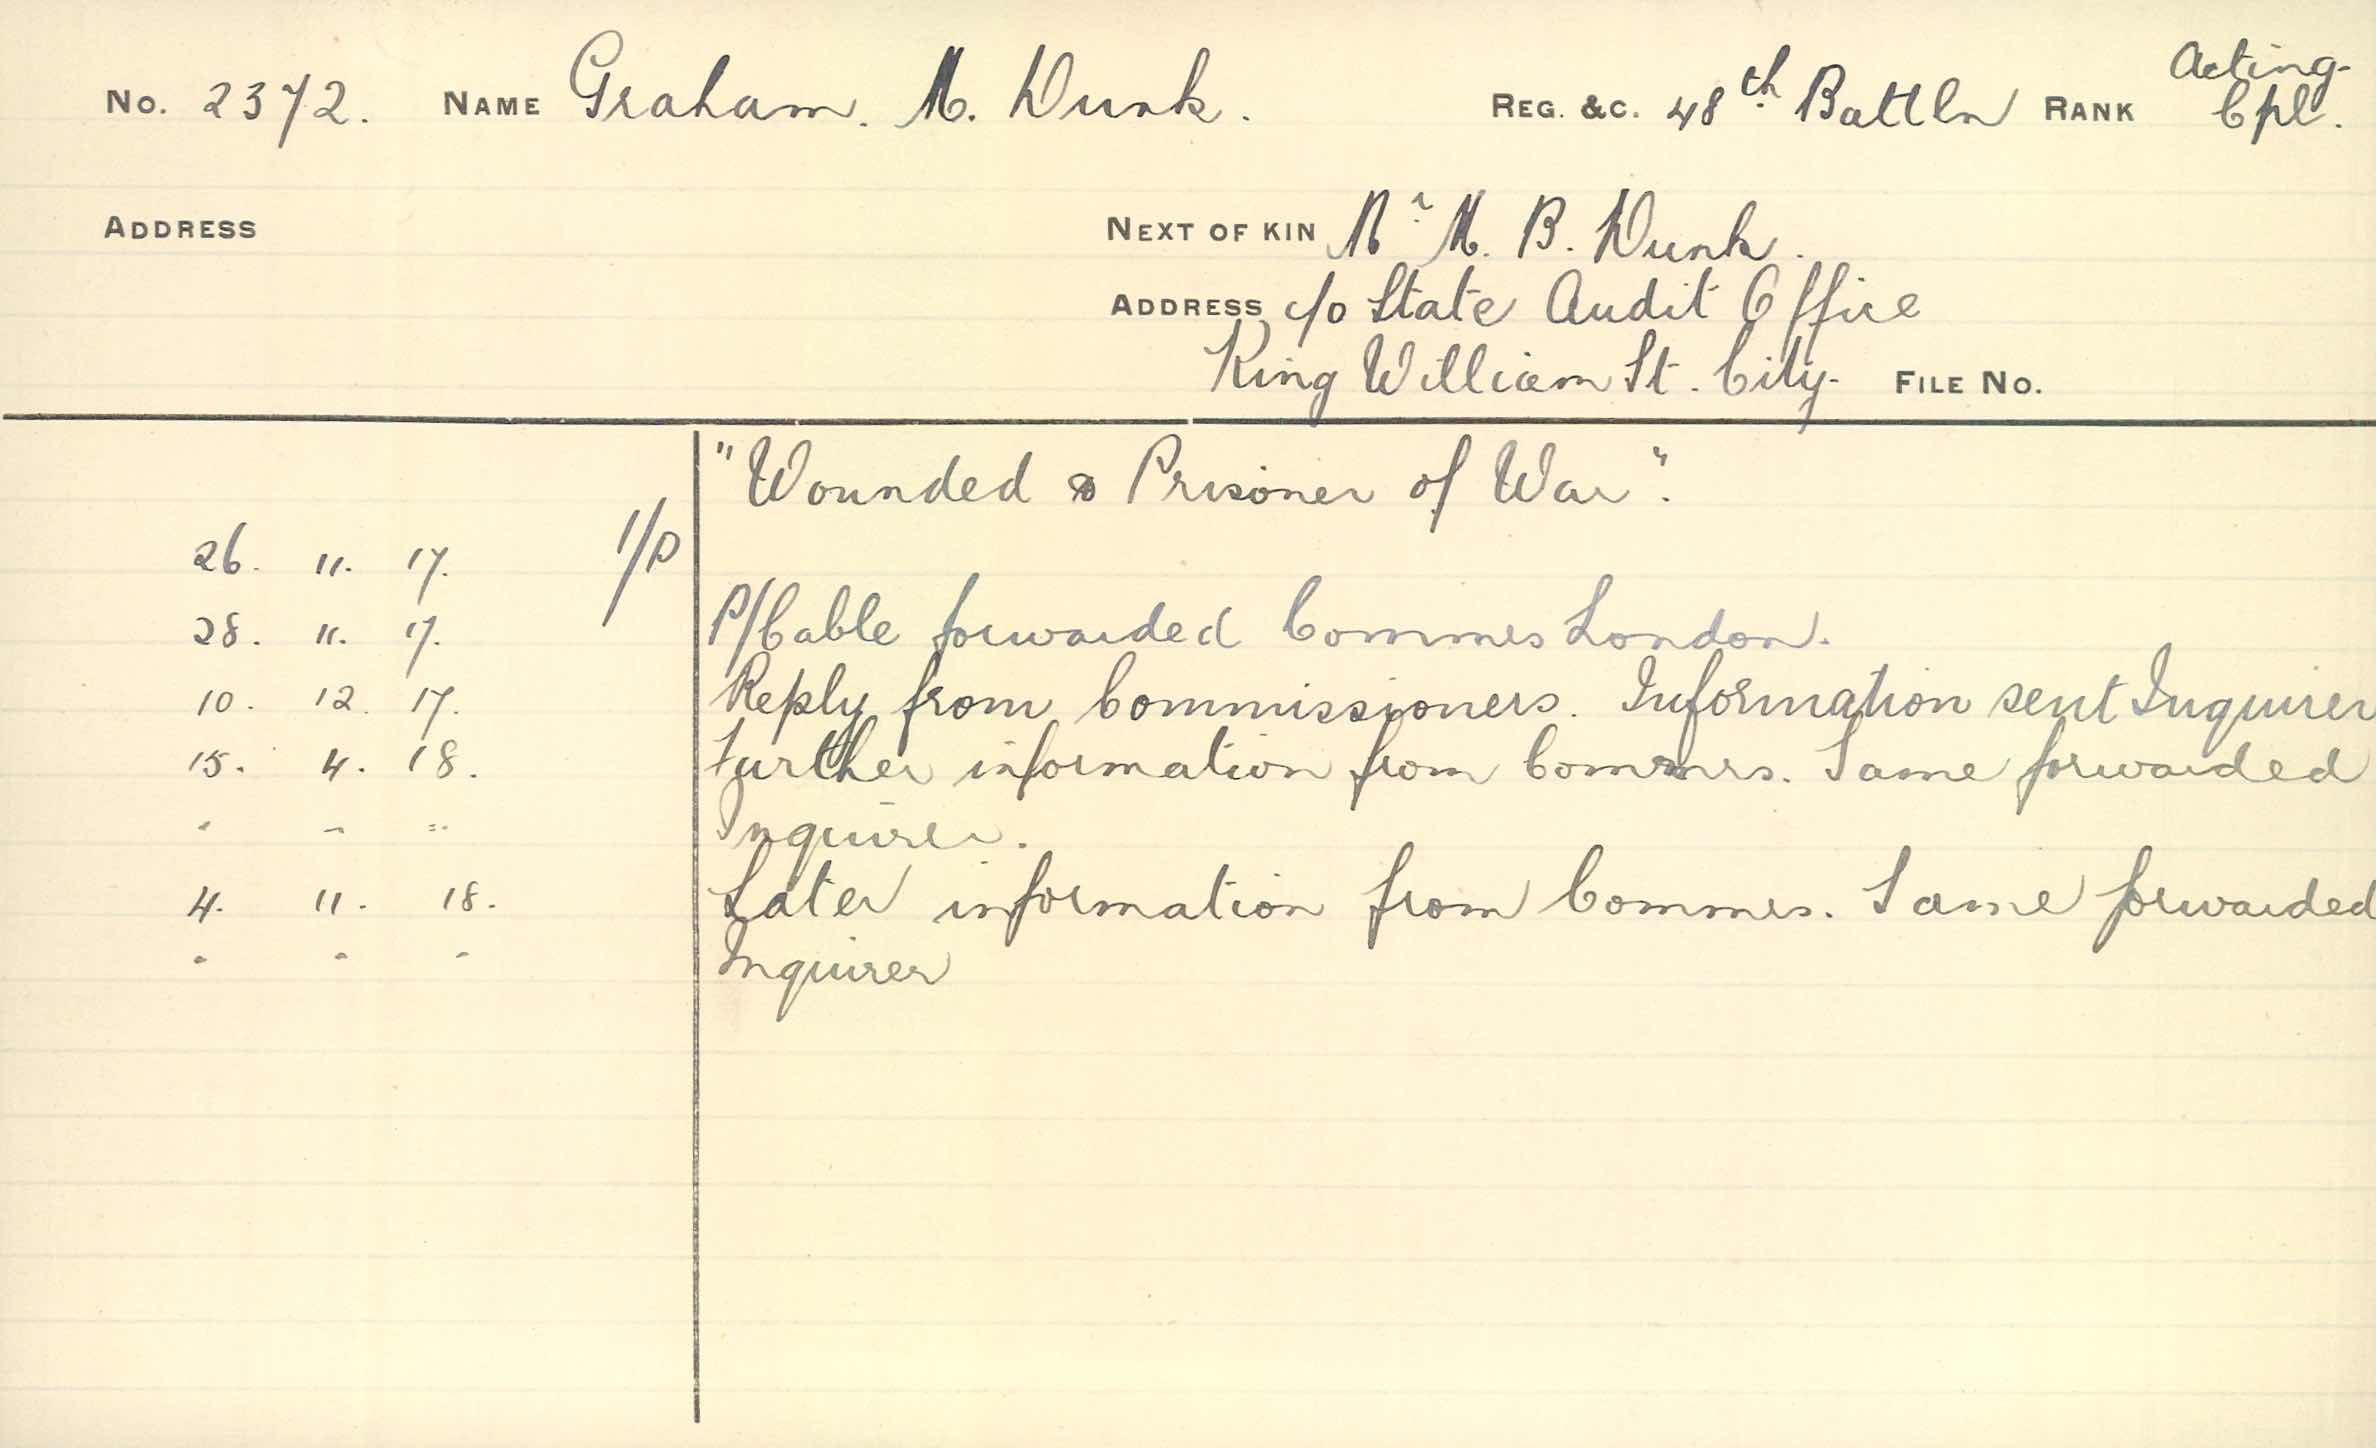 No. 2372. NAME Graham. M. Dunk. REG. &C. 48th Battln RANK Acting- Cpl.
ADDRESS NEXT OF KIN Mr M. B. Dunk.
ADDRESS c/o State Audit Office
King William St. City. FILE No.
"Wounded & Prisoner of War".
26. 11. 17. 1/P
28. 11. 17. P/Cable forwarded Commrs London.
10. 12. 17. Reply from Commissioners. Information sent Inquirer
15. 4. 18. Further information from Commrs. Same forwarded
" " " Inquirer.
4. 11. 18. Later information from Commrs. Same forwarded
" " " Inquirer